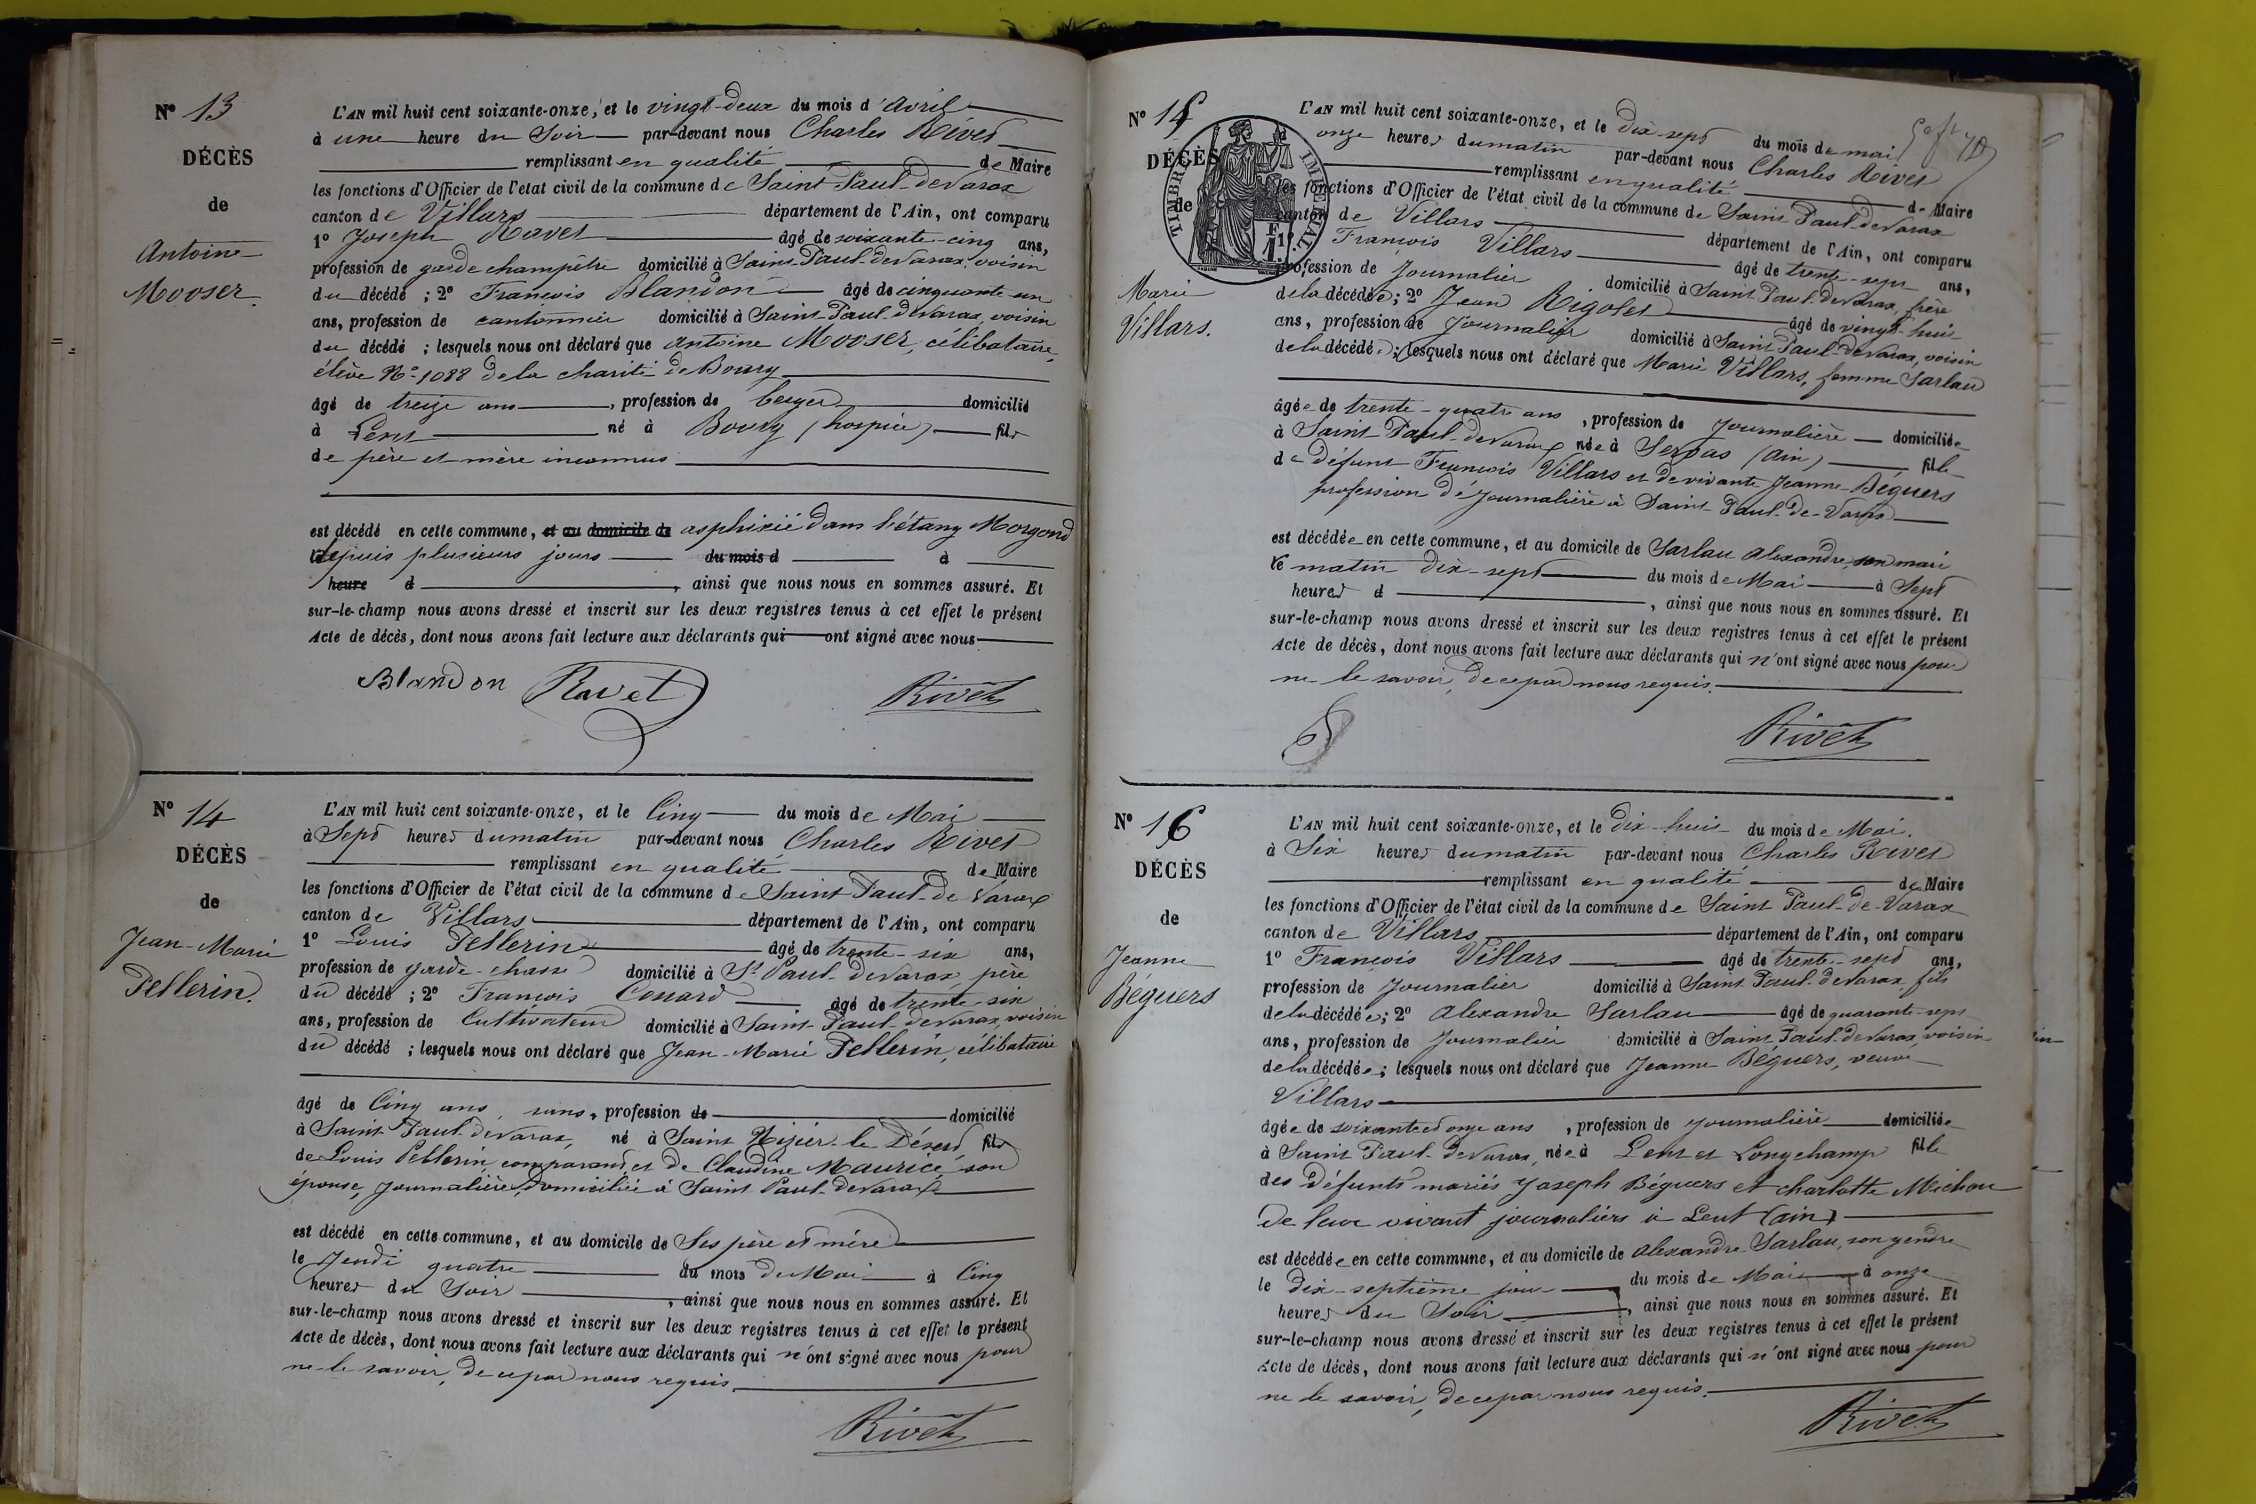 N° 13
DÉCÈS
de
Antoine
Mooser.
L'AN mil huit cent soixante-onze, et le vingt-deux du mois d'avril
à une heure du Soir par-devant nous Charles Rivet
remplissant en qualité de Maire
les fonctions d'Officier de l'état civil de la commune de Saint Paul-de Varax
canton de Villars département de l'Ain, ont comparu
1° Joseph Ravet âgé de soixante-cinq ans,
profession de garde champêtre domicilié à Saint-Paul-de Varax, voisin
du décédé ; 2° François Blandon âgé de cinquante-un
ans, profession de cantonnier domicilié à Saint-Paul-de Varax, voisin
du décédé ; lesquels nous ont déclaré que Antoine Mooser, célibataire,
élève N° 1088 de la charité de Bourg
âgé de treize ans, profession de berger domicilié
à Lent né à Bourg (hospice) fils
de père et mère inconnus
est décédé en cette commune, et au domicile de asphixié dans l'étang Morgond
depuis plusieurs jours du mois d à
heure d , ainsi que nous nous en sommes assuré. Et
sur-le-champ nous avons dressé et inscrit sur les deux registres tenus à cet effet le présent
Acte de décès, dont nous avons fait lecture aux déclarants qui ont signé avec nous
Blandon Ravet Rivet
N° 14
DÉCÈS
de
Jean-Marie
Pellerin.
L'AN mil huit cent soixante-onze, et le Cinq du mois de Mai
à Sept heures du matin par-devant nous Charles Rivet
remplissant en qualité de Maire
les fonctions d'Officier de l'état civil de la commune de Saint Paul-de Varax
canton de Villars département de l'Ain, ont comparu
1° Louis Pellerin âgé de trente-six ans,
profession de garde-chasse domicilié à St Paul-de Varax, père
du décédé ; 2° François Conard âgé de trente-six
ans, profession de Cultivateur domicilié à Saint-Paul-de Varax, voisin
du décédé ; lesquels nous ont déclaré que Jean-Marie Pellerin, célibataire
âgé de Cinq ans, sans, profession de domicilié
à Saint-Paul-de Varax, né à Saint Nizier-le Désert, fils
de Louis Pellerin comparant, et de Claudine Maurice, son
épouse, Journalière domiciliée à Saint Paul-de Varax
est décédé en cette commune, et au domicile de Ses père et mère
le Jeudi quatre du mois de Mai à Cinq
heures du Soir , ainsi que nous nous en sommes assuré. Et
sur-le-champ nous avons dressé et inscrit sur les deux registres tenus à cet effet le présent
Acte de décès, dont nous avons fait lecture aux déclarants qui n'ont signé avec nous pour
ne le savoir, de ce par nous requis.
Rivet
N° 15
DÉCÈS
de
TIMBRE IMPÉRIAL
1F
Marie
Villars.
L'AN mil huit cent soixante-onze, et le dix-sept du mois de mai
onze heures du matin par-devant nous Charles Rivet
remplissant en qualité de Maire
les fonctions d'Officier de l'état civil de la commune de Saint Paul-de Varax
canton de Villars département de l'Ain, ont comparu
1° François Villars âgé de trente-sept ans,
profession de Journalier domicilié à Saint Paul-de Varax, frère
de la décédée ; 2° Jean Rigolet âgé de vingt-huit
ans, profession de Journalier domicilié à Saint Paul-de Varax, voisin
de la décédée ; lesquels nous ont déclaré que Marie Villars, femme Sarlau
âgée de trente-quatre ans, profession de Journalière domiciliée
à Saint-Paul-de Varax née à Servas (Ain) fille
de défunt François Villars et de vivante Jeanne Béguers
profession de Journalière à Saint Paul-de-Varax
est décédée en cette commune, et au domicile de Sarlau Alexandre, son mari
le matin dix-sept du mois de Mai à Sept
heures d , ainsi que nous nous en sommes assuré. Et
sur-le-champ nous avons dressé et inscrit sur les deux registres tenus à cet effet le présent
Acte de décès, dont nous avons fait lecture aux déclarants qui n'ont signé avec nous pour
ne le savoir, de ce par nous requis.
Rivet
N° 16
DÉCÈS
de
Jeanne
Béguers
L'AN mil huit cent soixante-onze, et le dix-huit du mois de Mai.
à Six heures du matin par-devant nous Charles Rivet
remplissant en qualité de Maire
les fonctions d'Officier de l'état civil de la commune de Saint Paul-de-Varax
canton de Villars département de l'Ain, ont comparu
1° François Villars âgé de trente-sept ans,
profession de Journalier domicilié à Saint Paul-de Varax, fils
de la décédée ; 2° Alexandre Sarlau âgé de quarante-sept
ans, profession de Journalier domicilié à Saint Paul-de Varax, voisin
de la décédée ; lesquels nous ont déclaré que Jeanne Béguers, veuve
Villars
âgée de soixante et onze ans, profession de journalière domiciliée
à Saint Paul-de Varax, née à Lent et Longchamp fille
des défunts mariés Joseph Béguers et Charlotte Michon
de leur vivant journaliers à Lent (ain)
est décédée en cette commune, et au domicile de Alexandre Sarlau, son gendre
le dix-septième jour du mois de Mai à onze
heures du Soir , ainsi que nous nous en sommes assuré. Et
sur-le-champ nous avons dressé et inscrit sur les deux registres tenus à cet effet le présent
Acte de décès, dont nous avons fait lecture aux déclarants qui n'ont signé avec nous pour
ne le savoir, de ce par nous requis.
Rivet